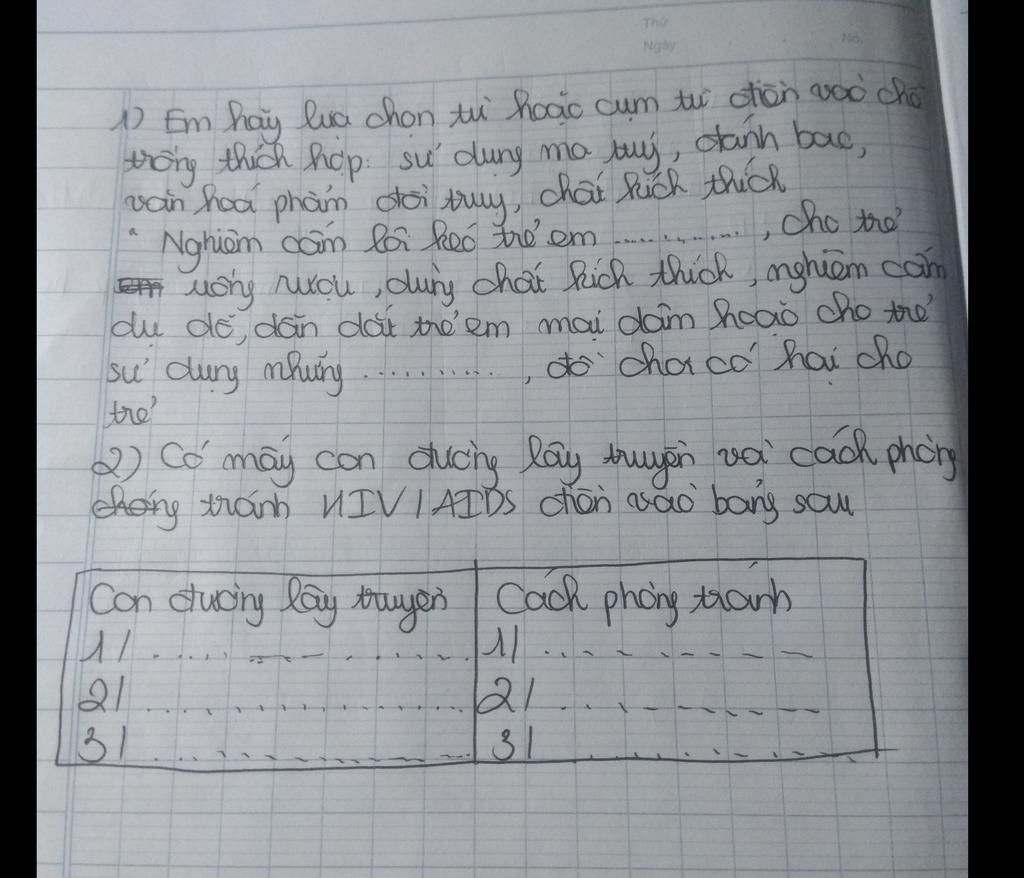 Thứ
Ngày No.
1) Em hãy lựa chọn từ hoặc cụm từ điền vào chỗ
trống thích hợp: sử dụng ma tuý, đánh bạc,
văn hoá phẩm đồi truỵ, chất kích thích
" Nghiêm cấm lôi kéo trẻ em ............, cho trẻ
uống rượu, dùng chất kích thích, nghiêm cấm
dụ dỗ, dẫn dắt trẻ em mại dâm hoặc cho trẻ
sử dụng những .........., đồ chơi có hại cho
trẻ
2) Có mấy con đường lây truyền và cách phòng
tránh HIV/AIDS điền vào bảng sau
Con đường lây truyền Cách phòng tránh
1/ .................... 1/ ..........
2/ .................... 2/ ..........
3/ .................... 3/ ..........